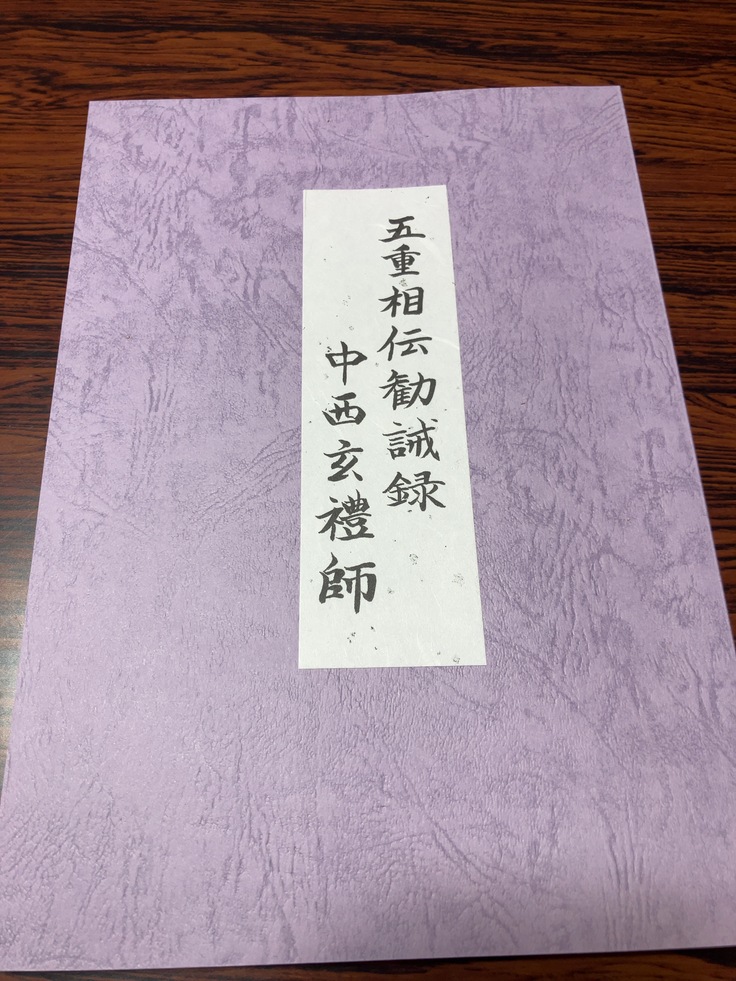 五重相伝勧誡録
中西玄禮師